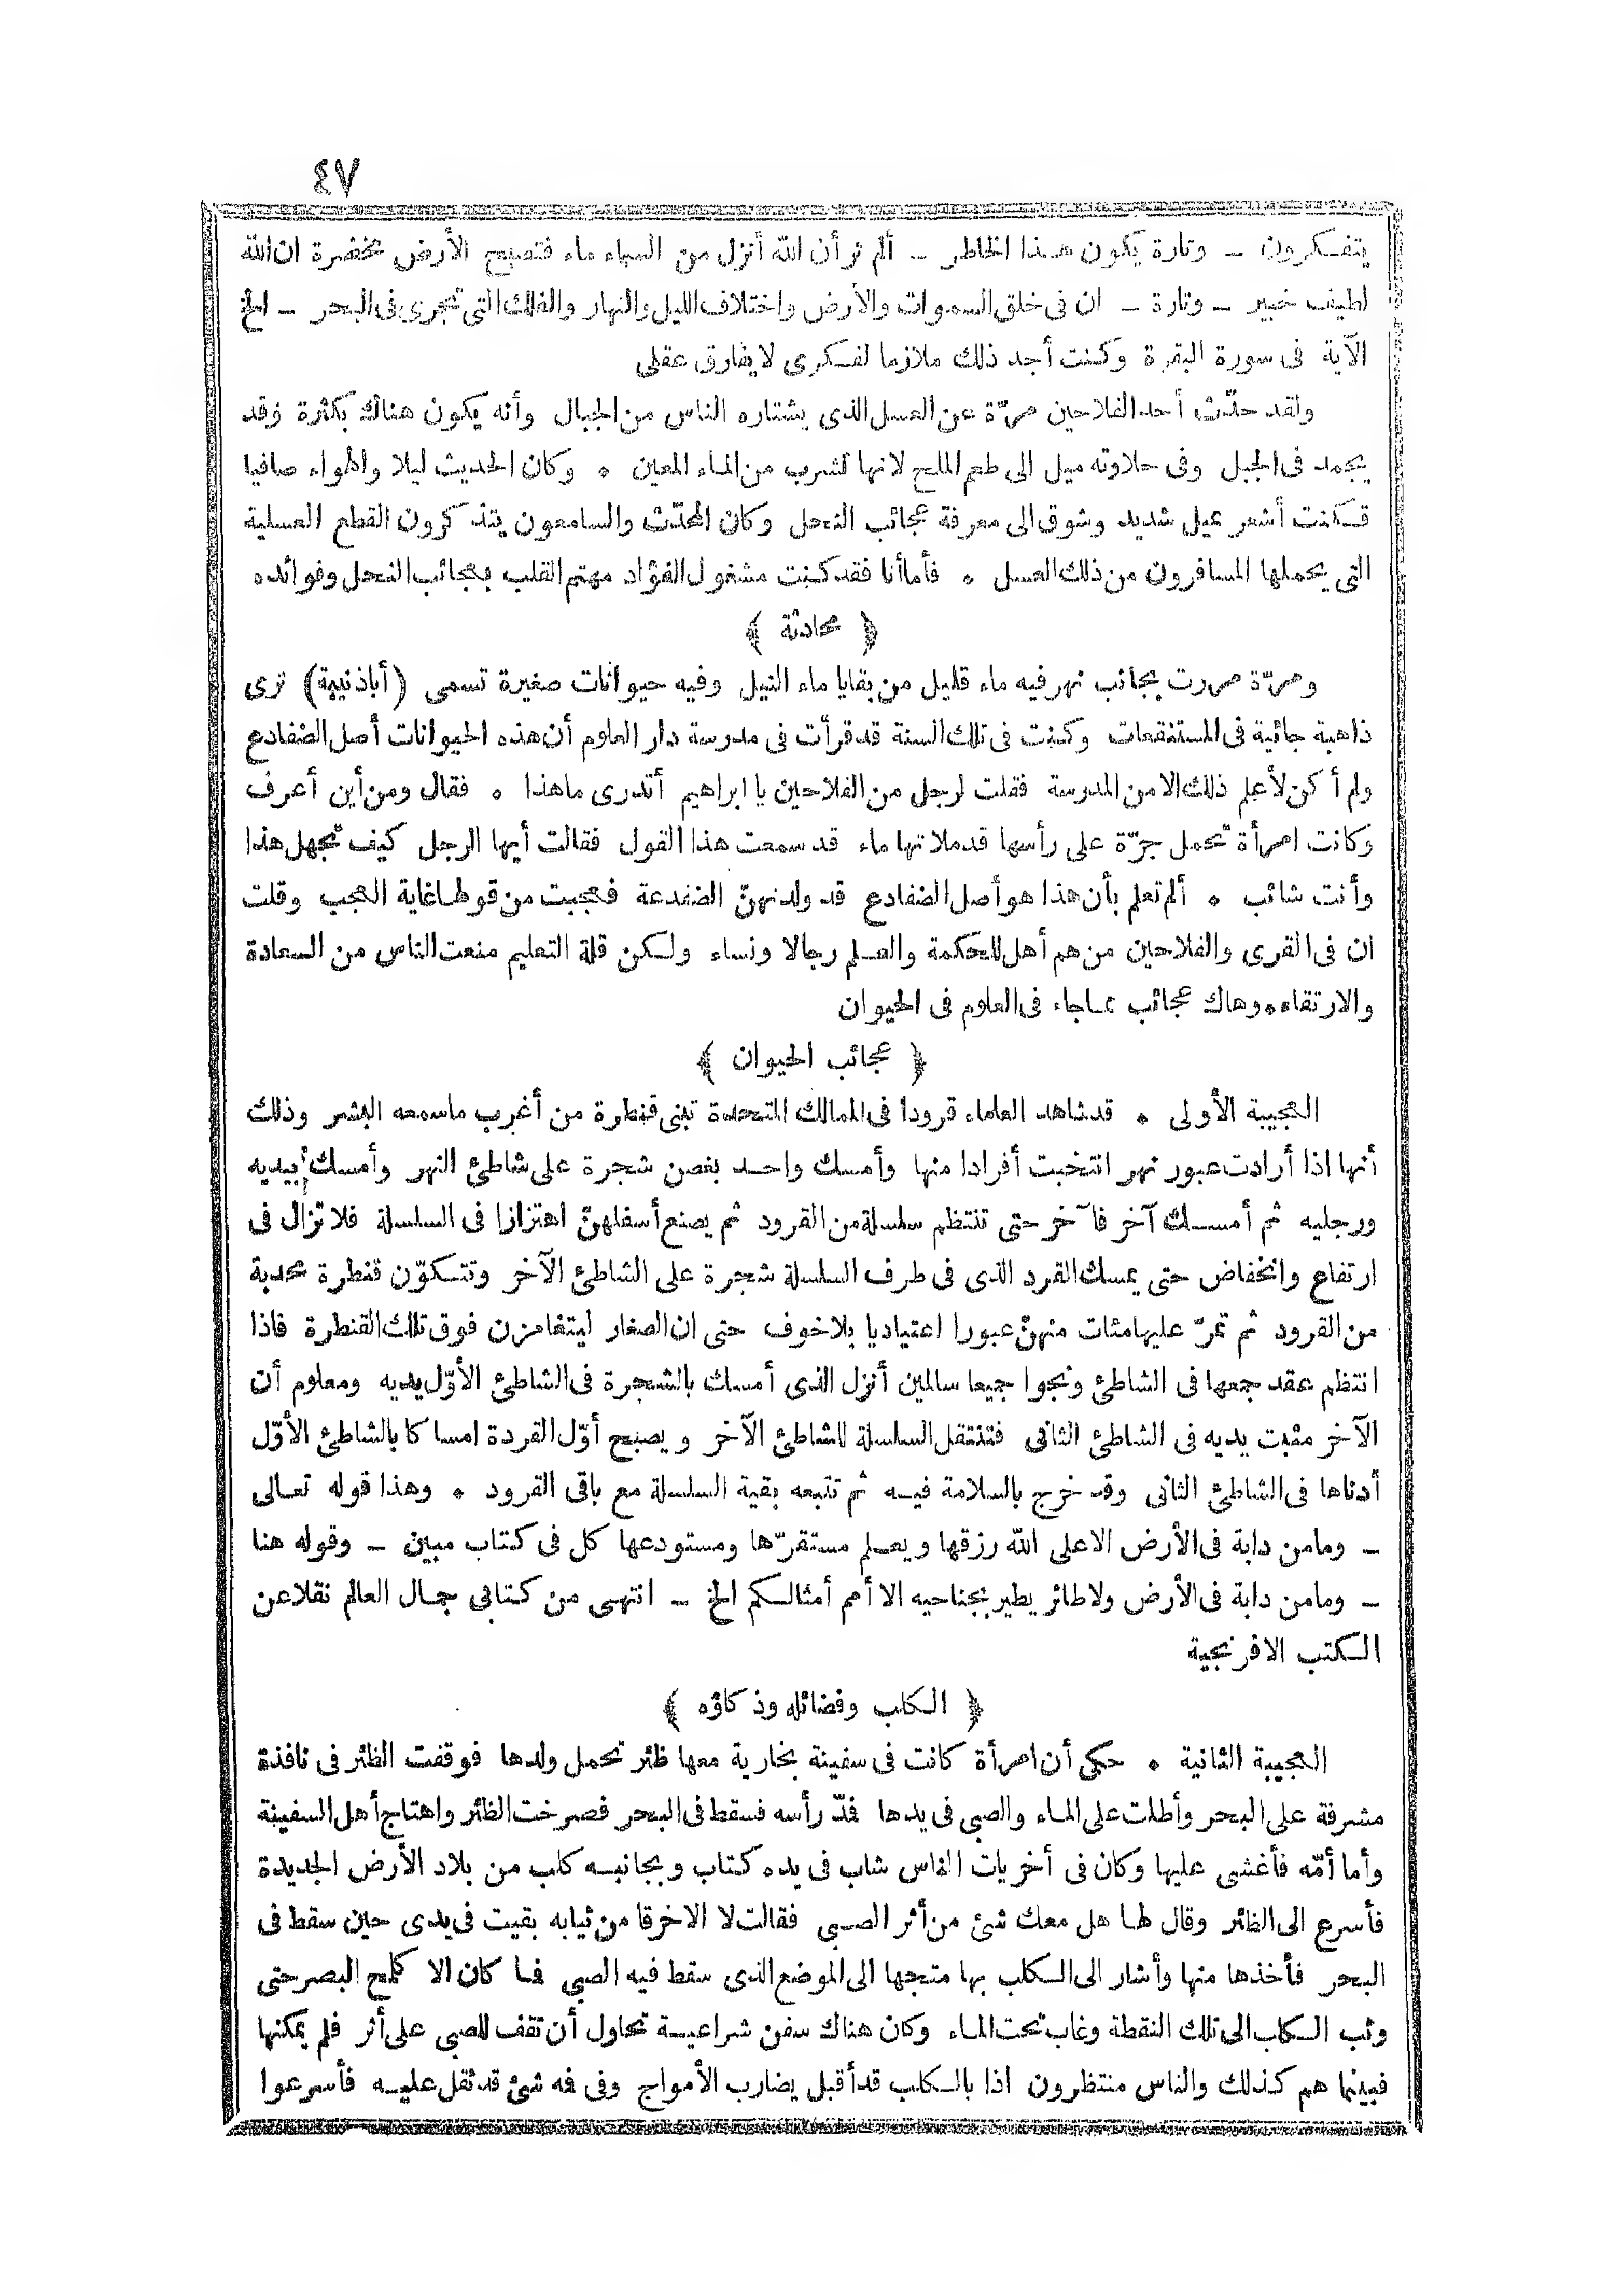 ٤٧
يتفكرون – وتارة يكون هذا الخاطر – ألم تر أن الله أنزل من السماء ماء فتصبح الأرض مخضرة ان الله
لطيف خبير – وتارة – ان فى خلق السموات والأرض واختلاف الليل والنهار والفلك التى تجرى فى البحر – الخ
الآية فى سورة البقرة وكنت أجد ذلك ملازما لفكرى لا يفارق عقلى
ولقد حدّث أحد الفلاحين مرّة عن العسل الذى يشتاره الناس من الجبال وأنه يكون هناك بكثرة وقد
يجمد فى الجبل وفى حلاوته ميل الى طعم الملح لانها تشرب من الماء المعين ٠ وكان الحديث ليلا والهواء صافيا
فكنت أشعر بميل شديد وشوق الى معرفة عجائب النحل وكان المحدّث والسامعون يتذكرون القطع العسلية
التى يحملها المسافرون من ذلك العسل ٠ فأما أنا فقد كنت مشغول الفؤاد مهتم القلب بعجائب النحل وفوائده
﴿ محادثة ﴾
ومرّة مررت بجانب نهر فيه ماء قليل من بقايا ماء النيل وفيه حيوانات صغيرة تسمى (أباذنيبة) ترى
ذاهبة جائية فى المستنقعات وكنت فى تلك السنة قد قرأت فى مدرسة دار العلوم أن هذه الحيوانات أصل الضفادع
ولم أكن لأعلم ذلك الا من المدرسة فقلت لرجل من الفلاحين يا ابراهيم أتدرى ماهذا ٠ فقال ومن أين أعرف
وكانت امرأة تحمل جرّة على رأسها قد ملأتها ماء قد سمعت هذا القول فقالت أيها الرجل كيف تجهل هذا
وأنت شائب ٠ ألم تعلم بأن هذا هو أصل الضفادع قد ولدتهنّ الضفدعة فعجبت من قولها غاية العجب وقلت
ان فى القرى والفلاحين من هم أهل للحكمة والعلم رجالا ونساء ولكن قلة التعليم منعت الناس من السعادة
والارتقاء ٠ وهاك عجائب مما جاء فى العلوم فى الحيوان
﴿ عجائب الحيوان ﴾
العجيبة الأولى ٠ قد شاهد العلماء قرودا فى الممالك المتحدة تبنى قنطرة من أغرب ماسمعه البشر وذلك
أنها اذا أرادت عبور نهر انتخبت أفرادا منها وأمسك واحد بغصن شجرة على شاطئ النهر وأمسك بيديه
ورجليه ثم أمسك آخر فآخر حتى تنتظم سلسلة من القرود ثم يصنع أسفلهنّ اهتزازا فى السلسلة فلا تزال فى
ارتفاع وانخفاض حتى يمسك القرد الذى فى طرف السلسلة شجرة على الشاطئ الآخر وتتكوّن قنطرة محدبة
من القرود ثم تمرّ عليها مئات منهنّ عبورا اعتياديا بلا خوف حتى ان الصغار ليتغامزن فوق تلك القنطرة فاذا
انتظم عقد جمعها فى الشاطئ ونجوا جميعا سالمين أنزل الذى أمسك بالشجرة فى الشاطئ الأوّل يديه ومعلوم أن
الآخر مثبت يديه فى الشاطئ الثانى فتنتقل السلسلة للشاطئ الآخر ويصبح أوّل القردة امساكا بالشاطئ الأوّل
أدناها فى الشاطئ الثانى وقد خرج بالسلامة فيه ثم تتبعه بقية السلسلة مع باقى القرود ٠ وهذا قوله تعالى
– ومامن دابة فى الأرض الا على الله رزقها ويعلم مستقرّها ومستودعها كل فى كتاب مبين – وقوله هنا
– ومامن دابة فى الأرض ولا طائر يطير بجناحيه الا أمم أمثالكم الخ – انتهى من كتابى جمال العالم نقلا عن
الكتب الافرنجية
﴿ الكلب وفضائله وذكاؤه ﴾
العجيبة الثانية ٠ حكى أن امرأة كانت فى سفينة بخارية معها ظئر تحمل ولدها فوقفت الظئر فى نافذة
مشرفة على البحر وأطلت على الماء والصبى فى يدها فمدّ رأسه فسقط فى البحر فصرخت الظئر واهتاج أهل السفينة
وأما أمّه فأغشى عليها وكان فى أخريات الناس شاب فى يده كتاب وبجانبه كلب من بلاد الأرض الجديدة
فأسرع الى الظئر وقال لها هل معك شئ من أثر الصبى فقالت لا الا خرقا من ثيابه بقيت فى يدى حين سقط فى
البحر فأخذها منها وأشار الى الكلب بها متجها الى الموضع الذى سقط فيه الصبى فما كان الا كلمح البصر حتى
وثب الكلب الى تلك النقطة وغاب تحت الماء وكان هناك سفن شراعية تحاول أن تقف للصبى على أثر فلم يمكنها
فبينما هم كذلك والناس منتظرون اذا بالكلب قد أقبل يضارب الأمواج وفى فمه شئ قد ثقل عليه فأسرعوا